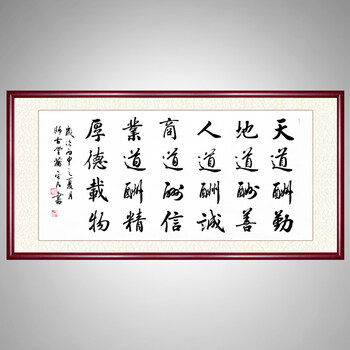 天道酬勤
地道酬善
人道酬誠
商道酬信
業道酬精
厚德載物
歲次丙申之夏月
師古堂
書